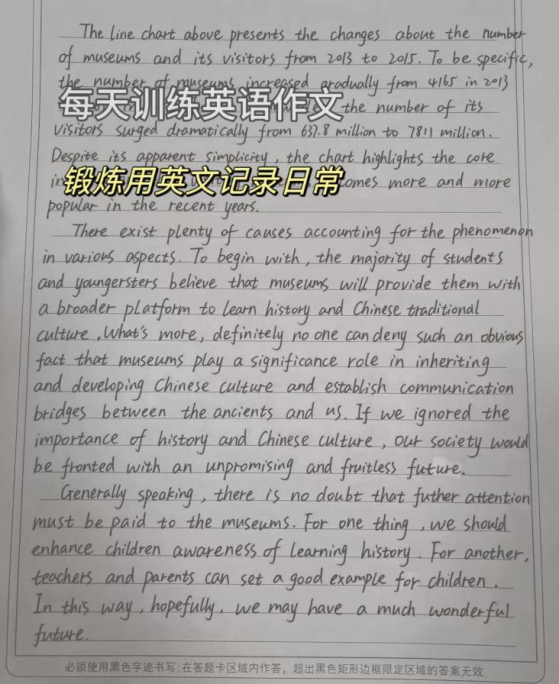 The line chart above presents the changes about the number
of museums and its visitors from 2013 to 2015. To be specific,
the number of museums increased gradually from 4165 in 2013
每天训练英语作文
the number of its
visitors surged dramatically from 637.8 million to 7811 million.
Despite its apparent simplicity, the chart highlights the core
锻炼用英文记录日常
comes more and more
popular in the recent years.
There exist plenty of causes accounting for the phenomenon
in various aspects. To begin with, the majority of students
and youngersters believe that museums will provide them with
a broader platform to learn history and Chinese traditional
culture. What's more, definitely no one can deny such an obvious
fact that museums play a significance role in inheriting
and developing Chinese culture and establish communication
bridges between the ancients and us. If we ignored the
importance of history and Chinese culture, our society would
be fronted with an unpromising and fruitless future.
Generally speaking, there is no doubt that futher attention
must be paid to the museums. For one thing, we should
enhance children awareness of learning history. For another,
teachers and parents can set a good example for children.
In this way, hopefully, we may have a much wonderful
future.
必须使用黑色字迹书写;在答题卡区域内作答,超出黑色矩形边框限定区域的答案无效